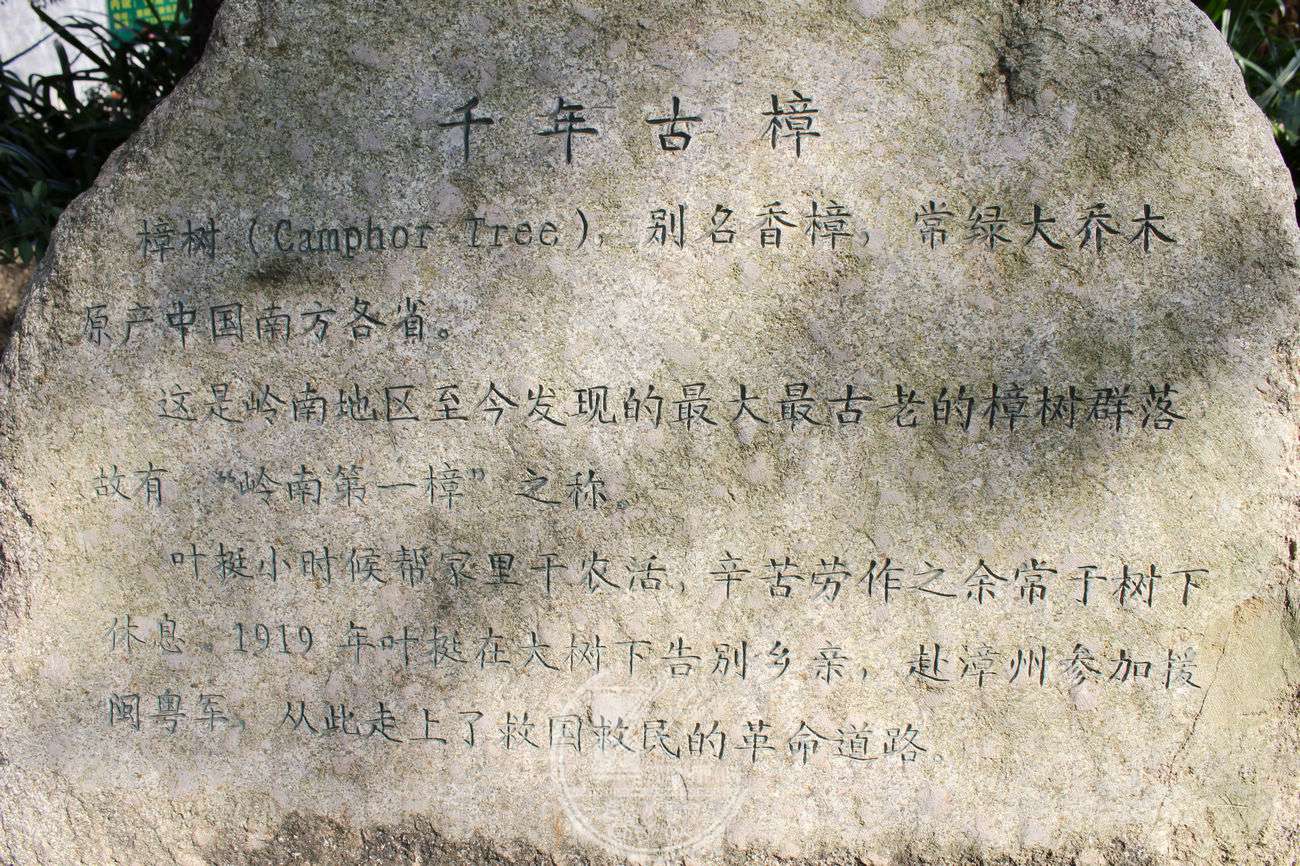 千年古樟
樟树（Camphor Tree），别名香樟，常绿大乔木
原产中国南方各省。
这是岭南地区至今发现的最大最古老的樟树群落
故有“岭南第一樟”之称。
叶挺小时候帮家里干农活，辛苦劳作之余常于树下
休息 1919 年叶挺在大树下告别乡亲，赴漳州参加援
闽粤军，从此走上了救国救民的革命道路。